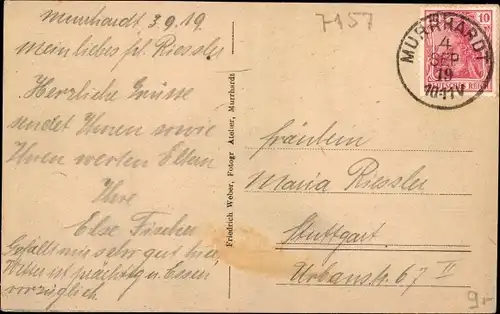 Murrhardt 3.9.19.
Mein liebes frl. Riessler
Herzliche Grüsse
sendet Ihnen sowie
Ihren werten Eltern
Ihre
Else Fischer
Gefällt mir sehr gut hier
Wetter ist prächtig u. Essen
vorzüglich.
Friedrich Weber, Fotogr Atelier, Murrhardt
7157
MURRHARDT
4
SEP
19
10-11V
10
DEUTSCHES REICH
Fräulein
Maria Riessler
Stuttgart
Urbanstr. 67 II